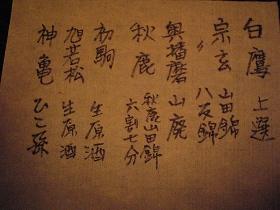 白鷹 上選
宗玄 山田錦
〃 八反錦
奥播磨 山廃
秋鹿 秋鹿山田錦
六割七分
初駒 生原酒
旭若松 生原酒
神亀 ひこ孫